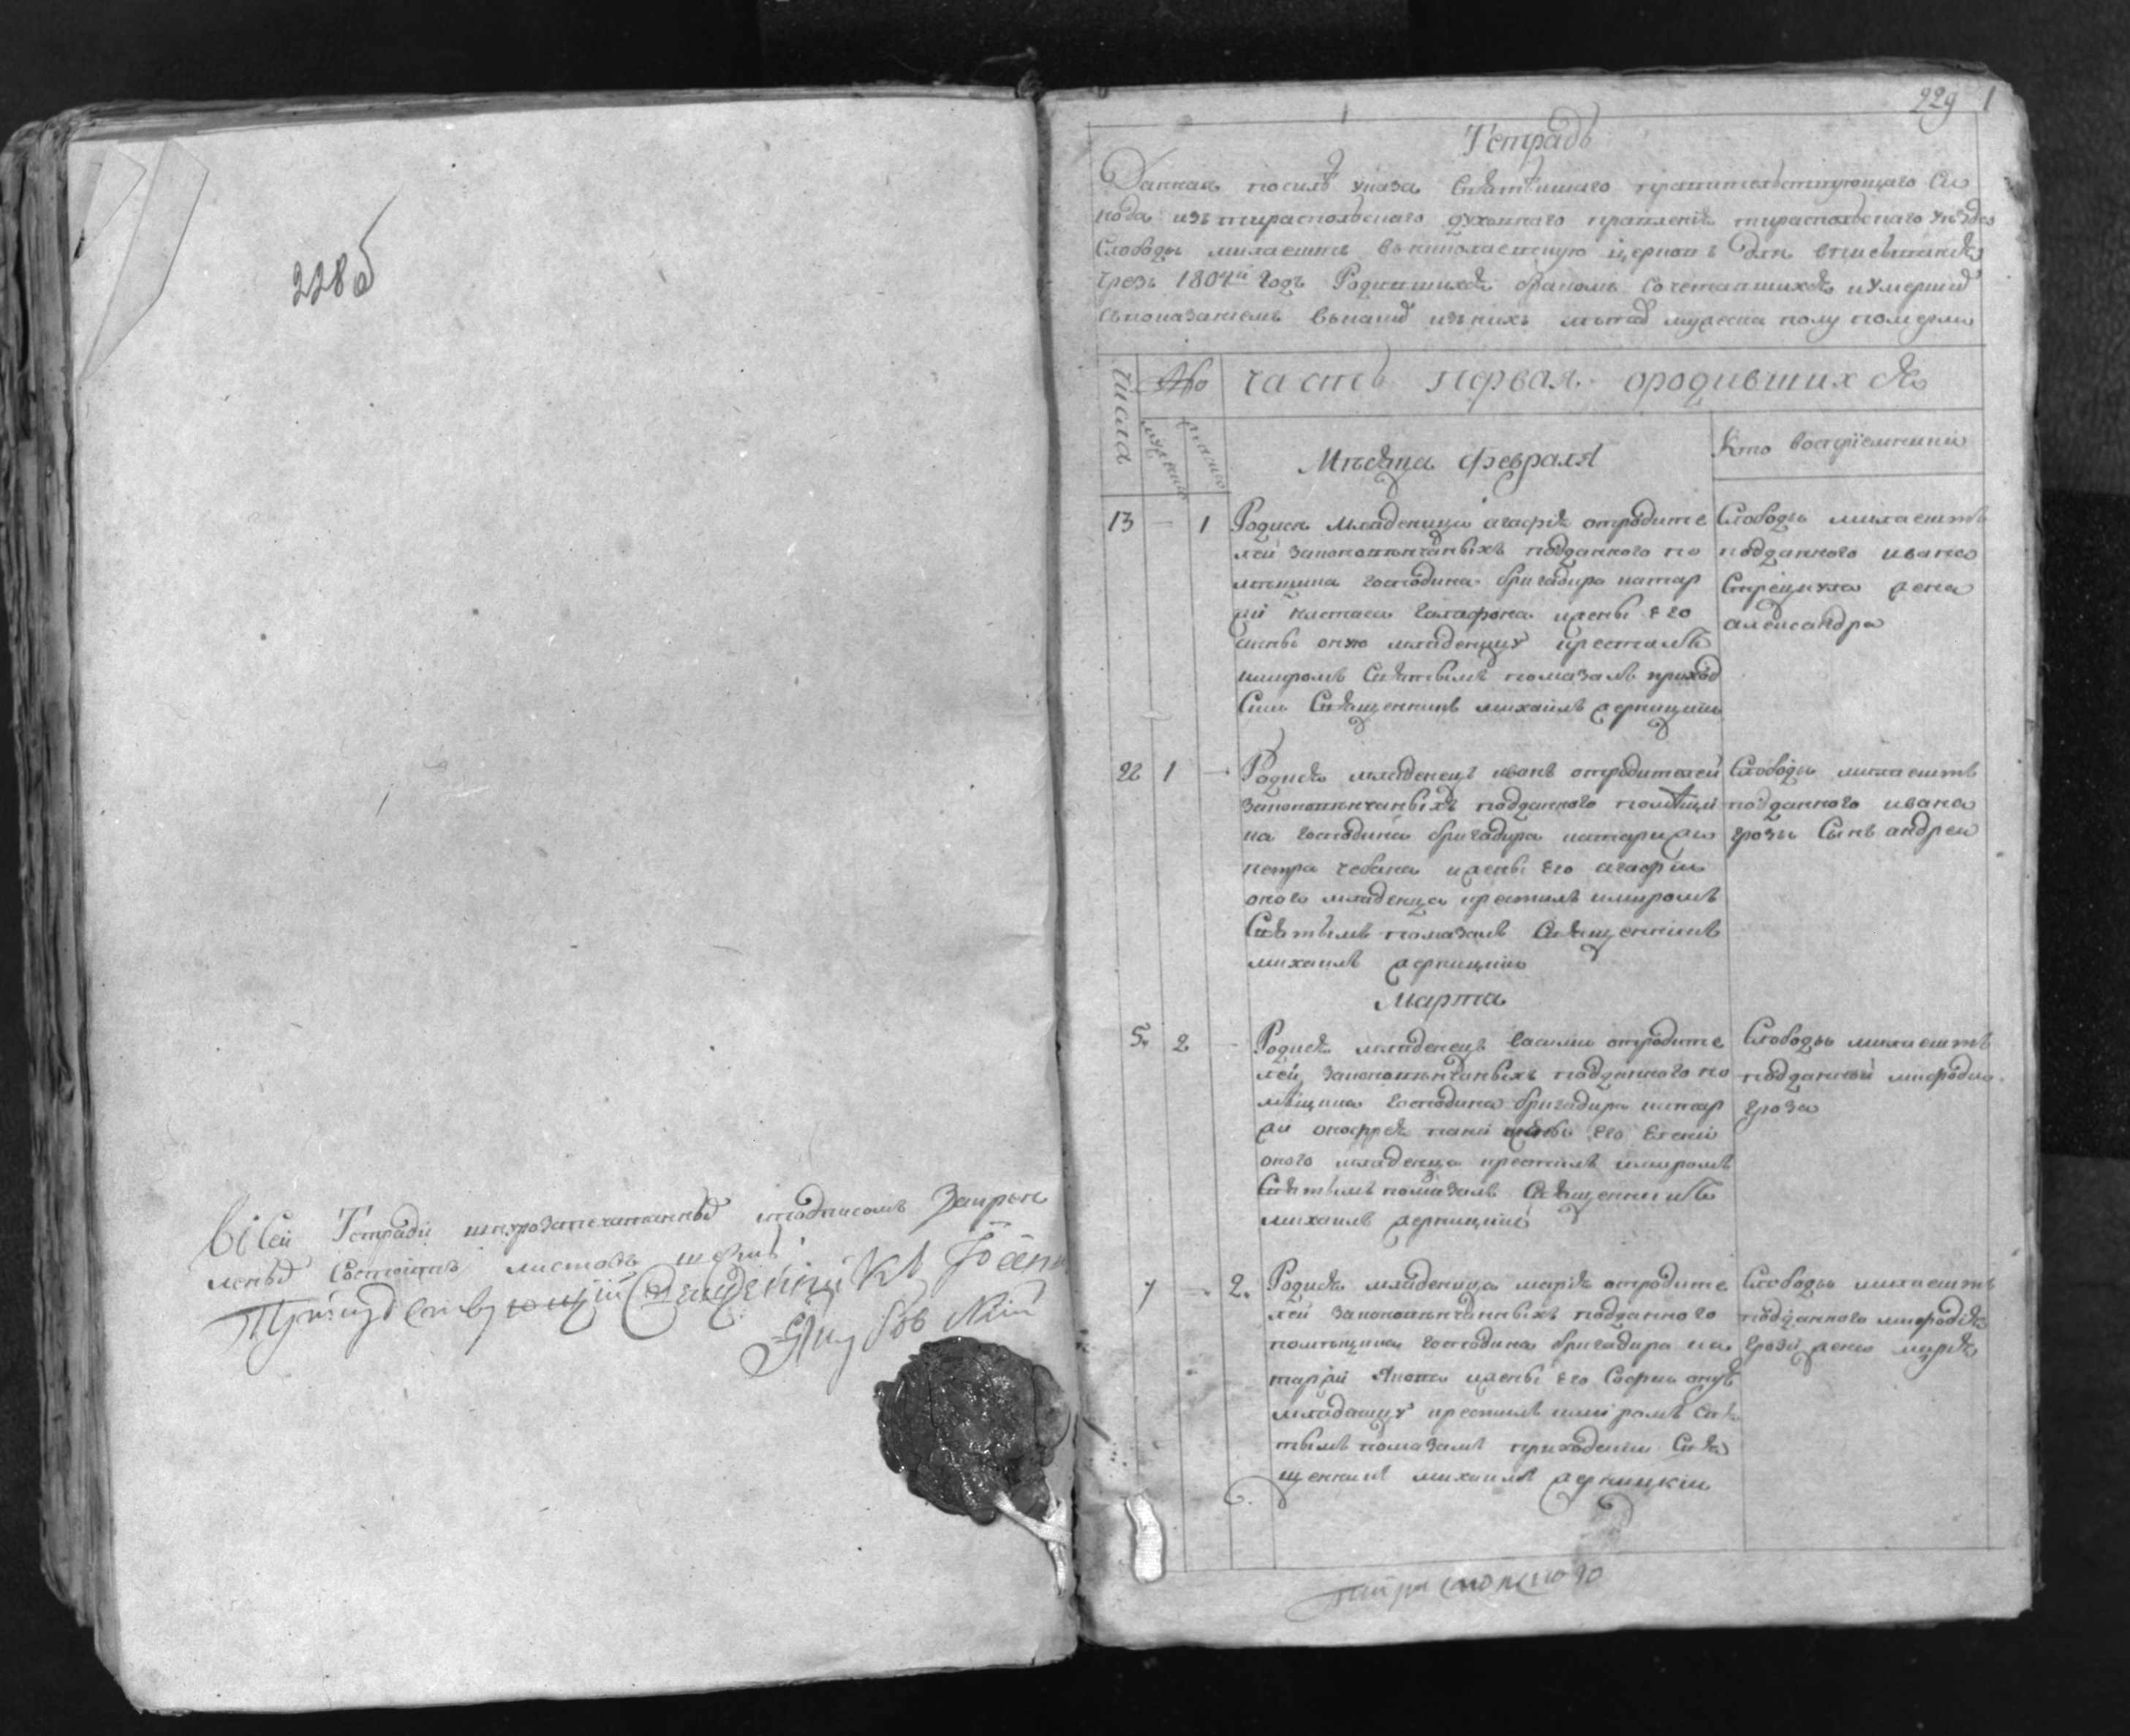 228б
Въ сей Тетради шнурозапечатанныхъ подписомъ Закреп
леныхъ Состоитъ листовъ шесть
Присудствующій Священникъ Іоаннъ
229 1
Тетрадь
Данная посилѣ указа Святѣйшаго правительствующаго Си
нода изъ тираспольскаго духовнаго правленія тираспольскаго уѣзда
Слободы милаештъ въ николаевскую церковъ для вписыванія
чрезъ 1804й годъ Родившихся бракомъ Сочетавшихся иумершихъ
Съпоказаніемъ вкакихъ изънихъ лѣтах мужеска полу померли
числа
часть первая ородившихся
мужеска
женска
Мѣсяца Февраля
Кто восприемники
13 — 1 Родися младеница агафія отродите
лей законовѣнчаныхъ подданого по
мѣщика господина бригадира катар
жи галафона ижены его
оную младеницу крестилъ
имиромъ Святымъ помазалъ приход
Священникъ михаилъ жерницкій
Слободы милаештъ
подданного ивана
жена
александра
22 1 — Родися младенецъ иванъ отродителей
законовѣнчаныхъ подданого помѣщи
ка господина бригадира катаржи
петра чебана ижены его агафіи
оного младенца крестилъ имиромъ
Святымъ помазалъ Священникъ
михаилъ жерницкій
Слободы милаештъ
подданного ивана
грозы Сынъ андреи
Марта
5. 2 — Родися младенецъ василии отродите
лей законовѣнчаныхъ подданного по
мѣщика господина бригадира катар
жи его
оного младенца крестилъ имиромъ
Святымъ помазалъ Священникъ
михаилъ жерницкій
Слободы милаештъ
подданный миродия
гроза
7 — 2. Родися младеница марія отродите
лей законовѣнчанныхъ подданного
помѣщика господина бригадира ка
таржи ижены его Софии оную
младеницу крестилъ имиромъ Свя
тымъ помазалъ приходский Свя
щенникъ михаилъ жерницкій
Слободы милаештъ
подданного миродия
грозы жена марія
тираспольского